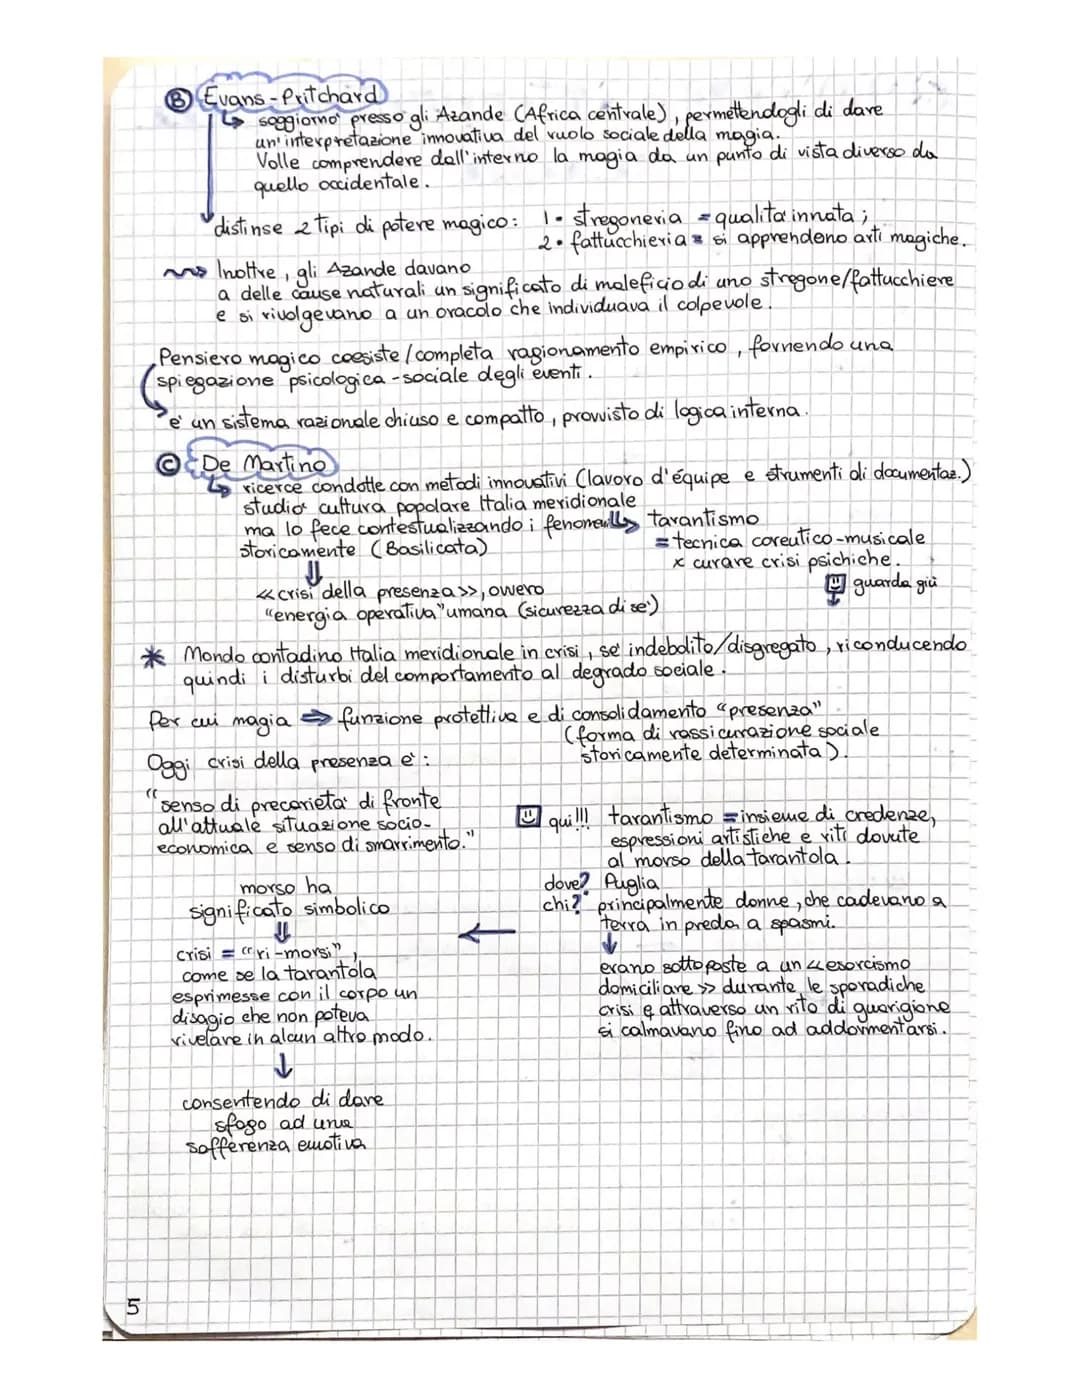 B Evans-Pritchard
↳ soggiornò presso gli Azande (Africa centrale), permettendogli di dare
un'interpretazione innovativa del ruolo sociale della magia.
Volle comprendere dall'interno la magia da un punto di vista diverso da
quello occidentale.
distinse 2 tipi di potere magico: 1• stregoneria = qualità innata;
2• fattucchieria = si apprendono arti magiche.
Inoltre, gli Azande davano
a delle cause naturali un significato di maleficio di uno stregone/fattucchiere
e si rivolgevano a un oracolo che individuava il colpevole.
Pensiero magico coesiste/completa ragionamento empirico, fornendo una
spiegazione psicologica-sociale degli eventi.
è un sistema razionale chiuso e compatto, provvisto di logica interna.
C De Martino
↳ ricerce condotte con metodi innovativi (lavoro d'équipe e strumenti di documentaz.)
studio cultura popolare Italia meridionale
ma lo fece contestualizzando i fenomeni ↳ tarantismo
storicamente (Basilicata) = tecnica coreutico-musicale
x curare crisi psichiche.
⇓ guarda giù
<<crisi della presenza>>, ovvero
"energia operativa" umana (sicurezza di sé)
* Mondo contadino Italia meridionale in crisi, sé indebolito/disgregato, riconducendo
quindi i disturbi del comportamento al degrado sociale.
Per cui magia ⇒ funzione protettiva e di consolidamento "presenza"
(forma di rassicurazione sociale
storicamente determinata).
Oggi crisi della presenza è:
"senso di precarietà di fronte
all'attuale situazione socio-
economica e senso di smarrimento."
qui!!! tarantismo = insieme di credenze,
espressioni artistiche e riti dovute
al morso della tarantola.
dove? Puglia
chi? principalmente donne, che cadevano a
terra in preda a spasmi.
↓
erano sottoposte a un <<esorcismo
domiciliare>> durante le sporadiche
crisi e attraverso un rito di guarigione
si calmavano fino ad addormentarsi.
←
morso ha
significato simbolico
⇓
crisi = "ri-morsi",
come se la tarantola
esprimesse con il corpo un
disagio che non poteva
rivelare in alcun altro modo.
↓
consentendo di dare
sfogo ad una
sofferenza emotiva
5